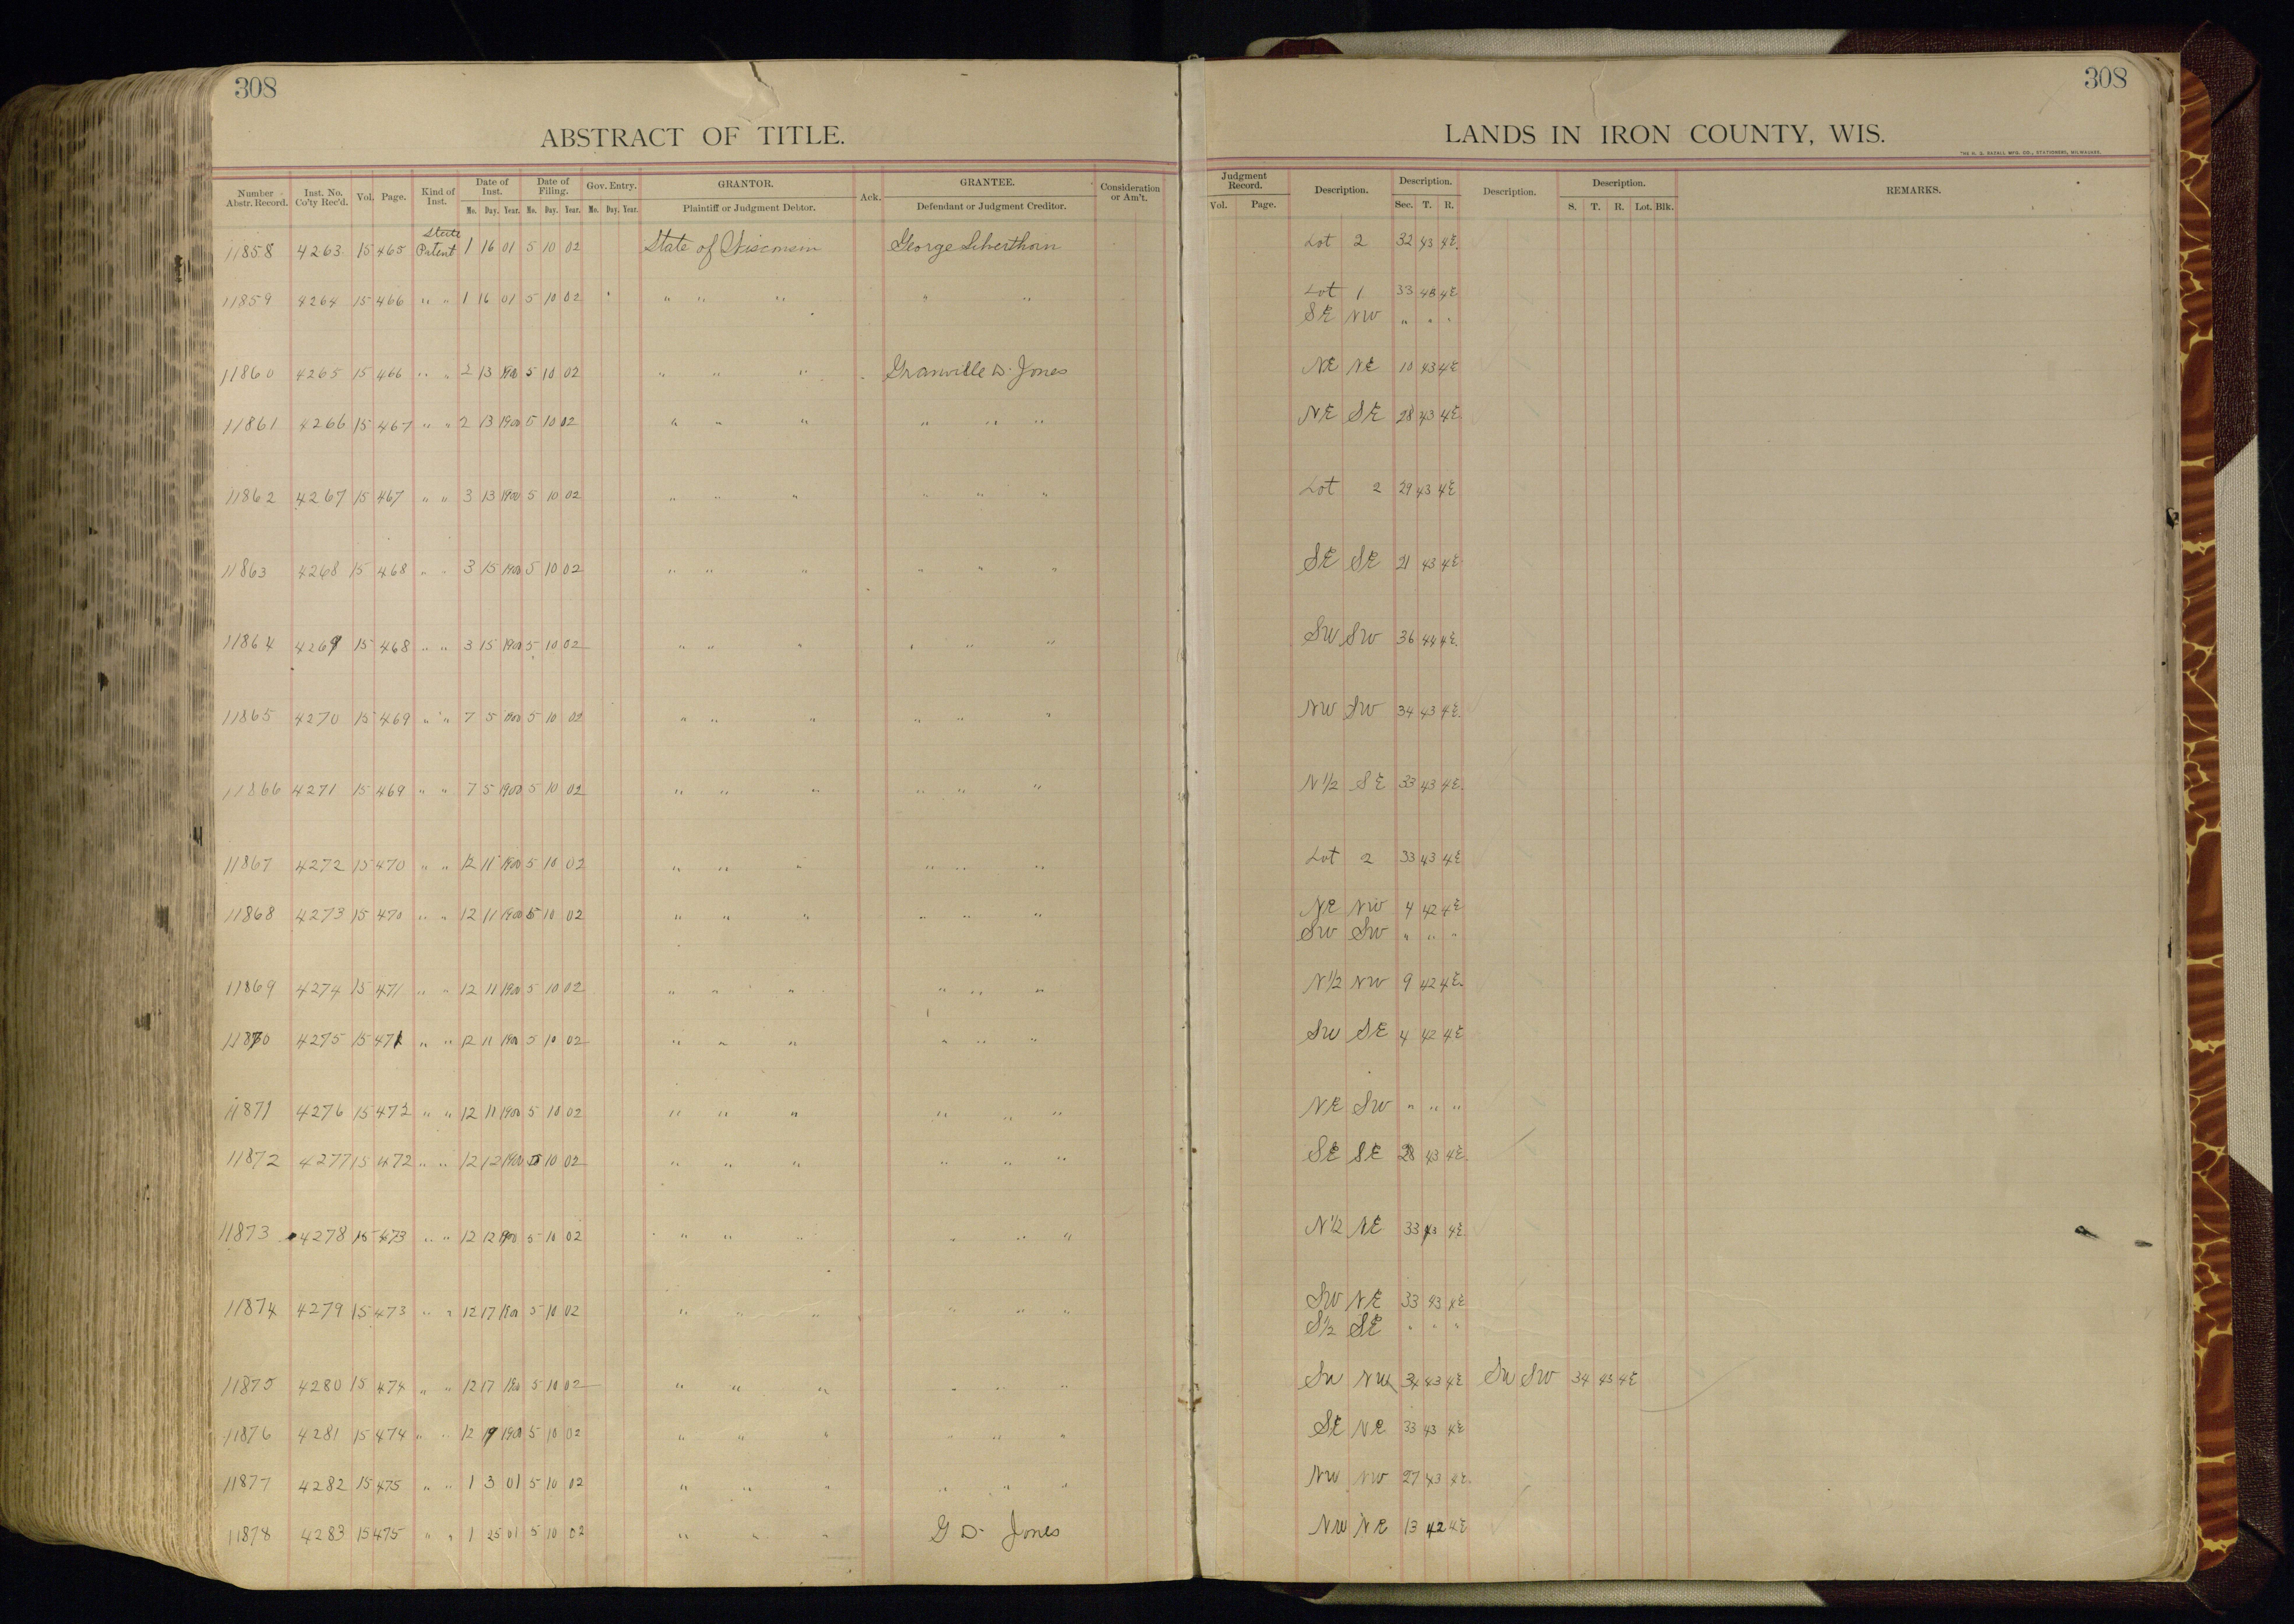 308
308
ABSTRACT OF TITLE.
LANDS IN IRON COUNTY, WIS.
THE H. G. RAZALL MFG. CO., STATIONERS, MILWAUKEE.
Number Abstr. Record. Inst. No. Co'ty Rec'd. Vol. Page. Kind of Inst. Date of Inst. Mo. Day. Year. Date of Filing. Mo. Day. Year. Gov. Entry. Mo. Day. Year. GRANTOR. Plaintiff or Judgment Debtor. Ack. GRANTEE. Defendant or Judgment Creditor. Consideration or Am't. Judgment Record. Vol. Page. Description. Description. Sec. T. R. Description. Description. S. T. R. Lot. Blk. REMARKS.
11858 4263 15 465 State Patent 1 16 01 5 10 02 State of Wisconsin George Silverthorn Lot 2 32 43 4E.
11859 4264 15 466 " " 1 16 01 5 10 02 " " " " " Lot 1 33 43 4E
SE NW " " "
11860 4265 15 466 " " 2 13 1900 5 10 02 " " " Granville D. Jones NE NE 10 43 4E
11861 4266 15 467 " " 2 13 1900 5 10 02 " " " " " " NE SE 28 43 4E
11862 4267 15 467 " " 3 13 1900 5 10 02 " " " " " " Lot 2 29 43 4E
11863 4268 15 468 " " 3 15 1900 5 10 02 " " " " " " SE SE 21 43 4E
11864 4269 15 468 " " 3 15 1900 5 10 02 " " " " " " SW SW 36 44 4E.
11865 4270 15 469 " " 7 5 1900 5 10 02 " " " " " " NW SW 34 43 4E.
11866 4271 15 469 " " 7 5 1900 5 10 02 " " " " " " N1/2 SE 33 43 4E.
11867 4272 15 470 " " 12 11 1900 5 10 02 " " " " " " Lot 2 33 43 4E
11868 4273 15 470 " " 12 11 1900 5 10 02 " " " " " " NE NW 4 42 4E
SW SW " " "
11869 4274 15 471 " " 12 11 1900 5 10 02 " " " " " " N1/2 NW 9 42 4E.
11870 4275 15 471 " " 12 11 1900 5 10 02 " " " " " " SW SE 4 42 4E
11871 4276 15 472 " " 12 11 1900 5 10 02 " " " " " " NE SW " " "
11872 4277 15 472 " " 12 12 1900 5 10 02 " " " " " " SE SE 28 43 4E.
11873 4278 15 473 " " 12 12 1900 5 10 02 " " " " " " N1/2 NE 33 43 4E.
11874 4279 15 473 " " 12 17 1900 5 10 02 " " " " " " SW NE 33 43 4E
S1/2 SE " " "
11875 4280 15 474 " " 12 17 1900 5 10 02 " " " " " " SW NW 34 43 4E SW SW 34 43 4E
11876 4281 15 474 " " 12 19 1900 5 10 02 " " " " " " SE NE 33 43 4E
11877 4282 15 475 " " 1 3 01 5 10 02 " " " " " " NW NW 27 43 4E.
11878 4283 15 475 " " 1 25 01 5 10 02 " " " G. D. Jones NW NE 13 42 4E